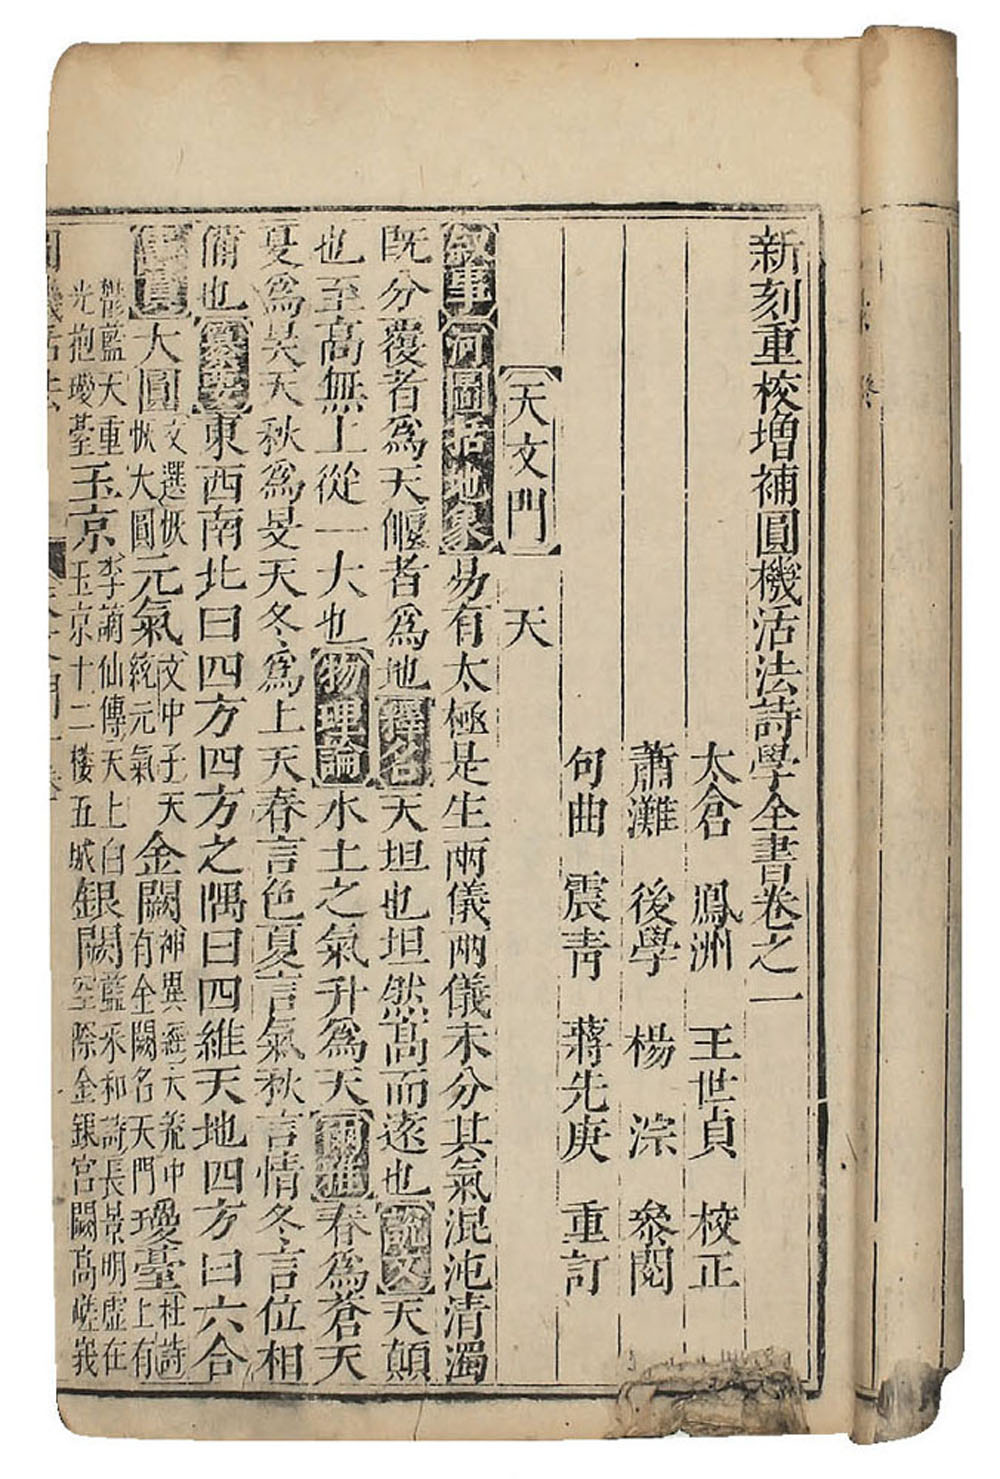 新刻重校增補圓機活法詩學全書卷之一
太倉 鳳洲 王世貞 校正
蕭灘 後學 楊淙 叅閱
句曲 震靑 蔣先庚 重訂
天文門 天
叙事 河圖括地象 易有太極是生兩儀兩儀未分其氣混沌清濁
旣分覆者爲天偃者爲地 釋名 天坦也坦然髙而遠也 說文 天顛
也至髙無上從一大也 物理論 水土之氣升爲天 爾雅 春爲蒼天
夏爲昊天秋爲旻天冬爲上天春言色夏言氣秋言情冬言位相
備也 纂要 東西南北曰四方四方之隅曰四維天地四方曰六合
大圓 文選恢恢大圓 元氣 文中子天統元氣 金闕 神異經天 中有金闕名天門 瓊臺 杜詩上有
鬱藍天重光抱瓊臺 玉京 李謫仙傳天上白玉京十二樓五城 銀闕 藍采和詩長景明虛在空際金銀宫闕髙嵯峩